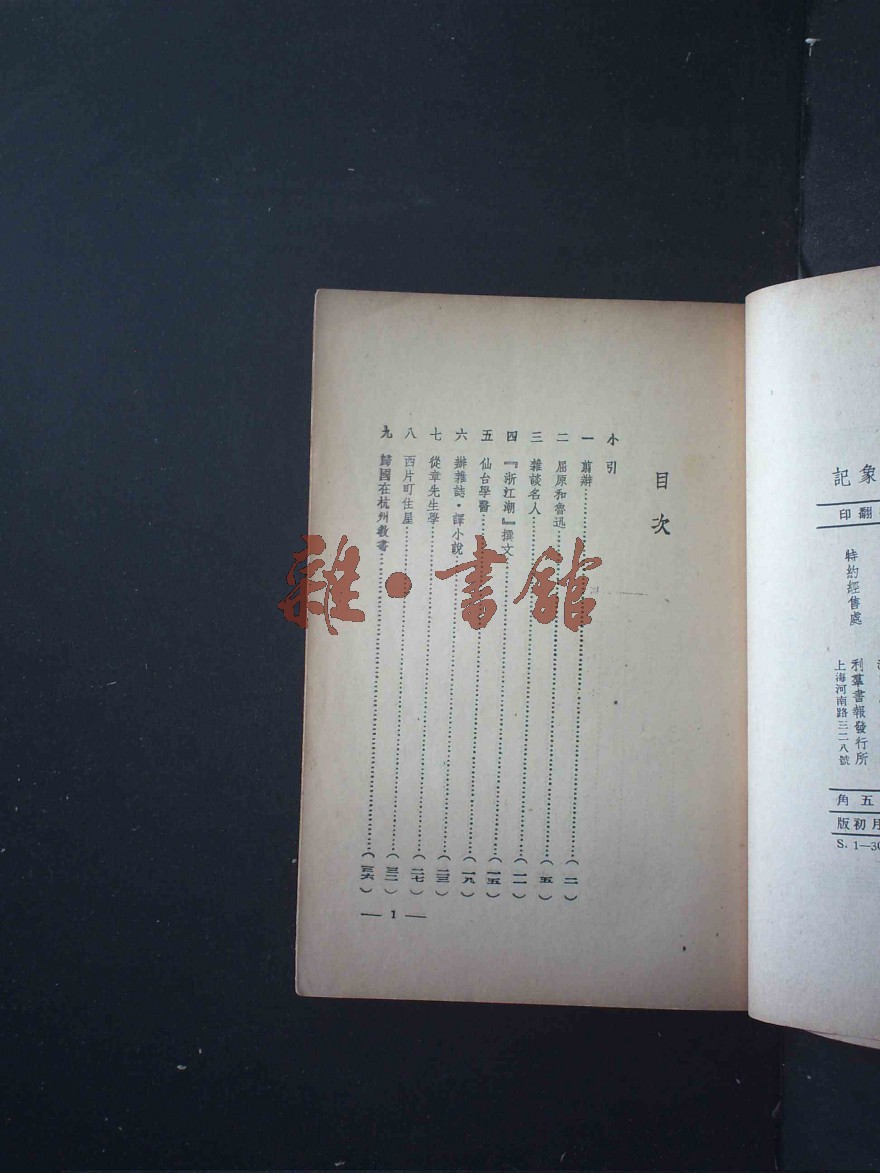 象記
翻印
特約經售處
利羣書報發行所
上海河南路三二八號
五角
月初版
S. 1—30
目次
小引
一 剪辮……(一)
二 屈原和魯迅……(五)
三 雜談名人……(一一)
四 『浙江潮』撰文……(一五)
五 仙台學醫……(一九)
六 辦雜誌・譯小說……(二三)
七 從章先生學……(二七)
八 西片町住屋……(三二)
九 歸國在杭州教書……(三六)
— 1 —
雜・書館